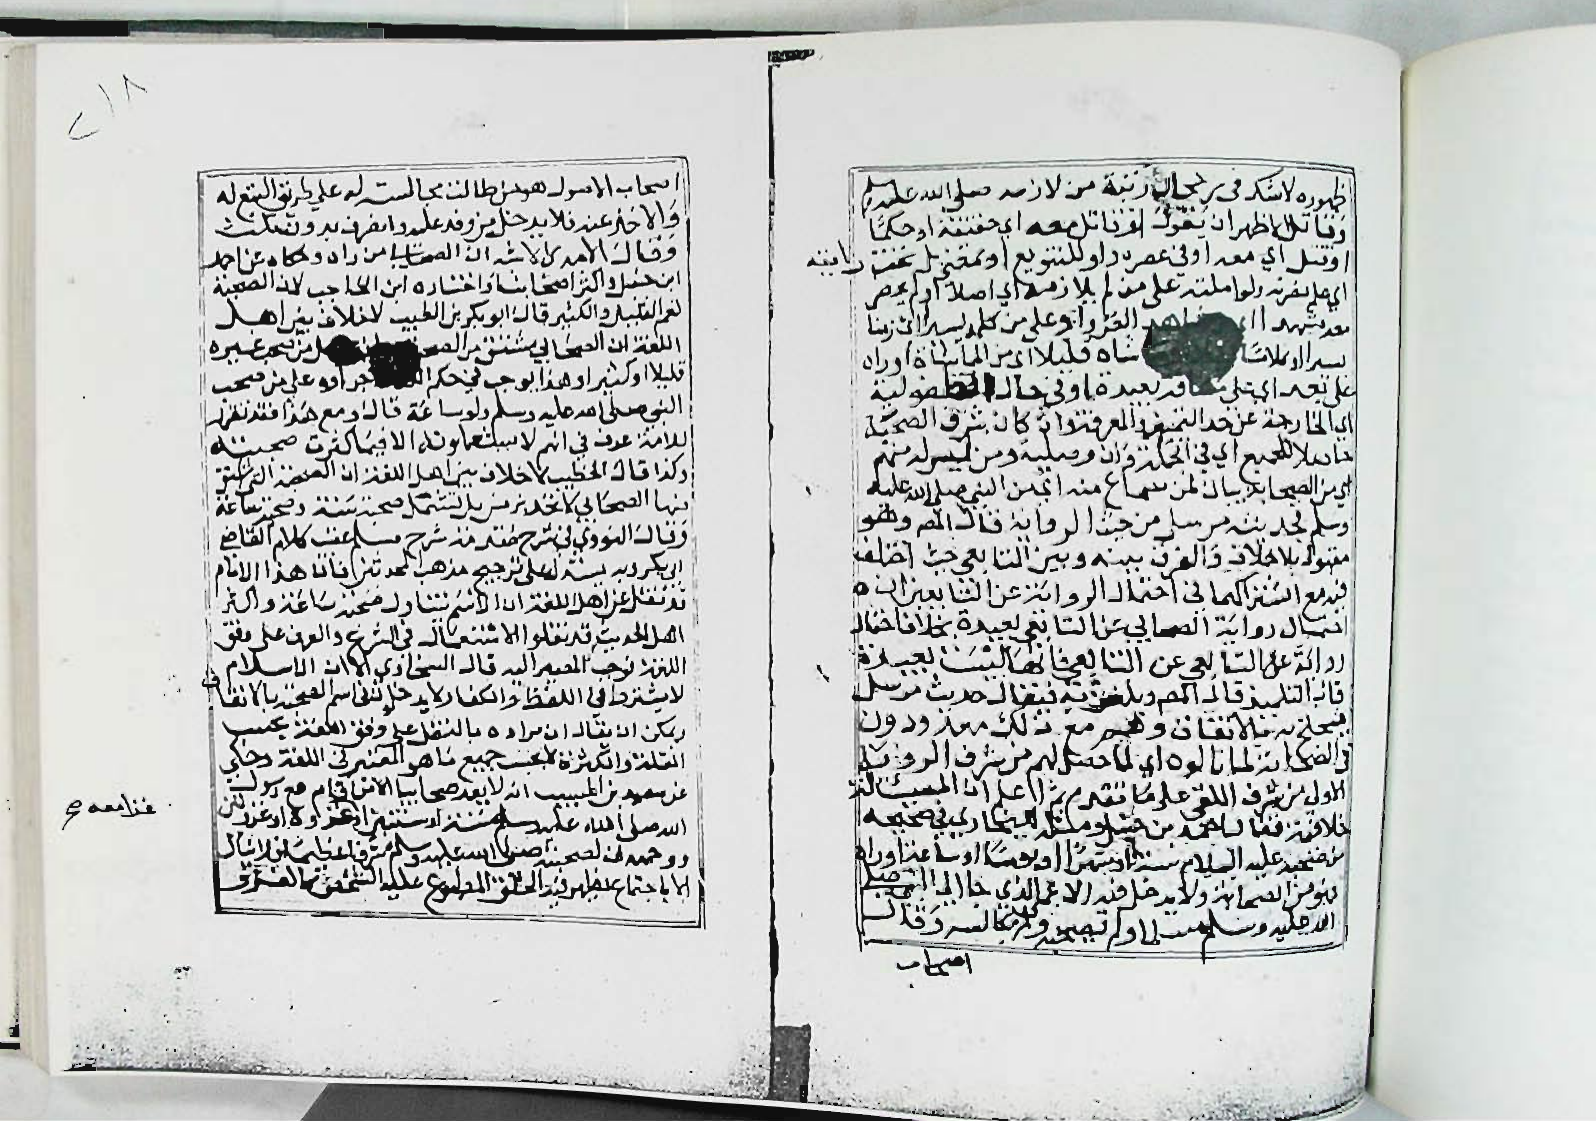 ظهوره لاشك في رجحان رتبة من لازمه صلى الله عليه وسلم
وقاتل الاظهر ان يقول او قاتل معه اي حقيقة او حكما
او قتل اي معه او في عصره واو للتنويع او تحت رايته
اي علم بقربه ولو املته على من لم يلازمه اي اصلا او لم يحضر
معه مشهدا اي الغزو او وعلى من كلمه يسيرا اي زمنا
يسيرا او كلاما شاه قليلا اي من المماشاة او راه
على بعد اي على بعيدة او في حال الطفولية
اي الخارجة عن حد التمييز والمعرفة وان كان شرف الصحبة
حاصلا للجميع اي في الجملة وان وصلية ومن ليس له منهم
اي من الصحابة بيان لمن سماع منه اي من النبي صلى الله عليه
وسلم فحديثه مرسل من حيث الرواية قال المص وهو
مقبول بلا خلاف والفرق بينه وبين التابعي حيث اختلف
فيه مع اشتراكهما في احتمال الرواية عن التابعين ان
احتمال رواية الصحابي عن التابعي بعيدة بخلاف احتمال
رواية التابعي عن التابعي فانها ليست بعيدة
قال التلميذ قال المص ويلغز به فيقال حديث مرسل
يحتج به بالاتفاق وهم مع ذلك معدودون
في الصحابة لما نالوه اي لما حصل لهم من شرف الروية
الاول من شرف اللقي على ما تقدم ثم اعلم ان المسئلة
خلافية فقال احمد بن حنبل ومثله البخاري في صحيحه
من صحبه عليه السلام سنة او شهرا او يوما او ساعة او راه
فهو من الصحابة ولا يدخل فيه الاعمى الذي جا الى النبي صلى
الله عليه وسلم مسلما ولم يصحبه ولم يجالسه وقال
اصحاب
رايته
٢١٨
اصحاب الاصول هو من طالت مجالسته له على طريق التبع له
والاخذ عنه فلا يدخل من وفد عليه وانصرف بدون مكث
وقال الامدي الاشبه ان الصحابي من راه وحكاه عن احمد
ابن حنبل واكثر اصحابنا واختاره ابن الحاجب لان الصحبة
تعم القليل والكثير قال ابو بكر بن الطيب لا خلاف بين اهل
اللغة ان الصحابي مشتق من الصحبة من صحب غيره
قليلا او كثيرا وهذا يوجب في حكم اجراؤه على من صحب
النبي صلى الله عليه وسلم ولو ساعة قال ومع هذا فقد تقرر
للامة عرف في انهم لا يستعملونه الا فيمن كثرت صحبته
وكذا قال الخطيب لا خلاف بين اهل اللغة ان الصحبة التي اشتق
منها الصحابي لا تحد بزمن بل تشمل صحبة سنة وصحبة ساعة
وقال النووي في شرح مقدمة شرح مسلم عقب كلام القاضي
ابي بكر وبه يستدل على ترجيح مذهب المحدثين فان هذا الامام
قد نقل عن اهل اللغة ان الاسم يتناول صحبة ساعة واكثر
اهل الحديث قد نقلوا الاستعمال في الشرع والعرف على وفق
اللغة فوجب المصير اليه قال السخاوي الا ان الاسلام
لا يشترط في اللفظ والكفار لا يدخلون في اسم الصحبة بالاتفاق
ويمكن ان يقال ان مراده بالنقل على وفق اللغة بحسب
القلة والكثرة لا بحسب جميع ما هو المعتبر في اللغة وحكي
عن سعيد بن المسيب انه لا يعد صحابيا الا من اقام مع رسول
الله صلى الله عليه وسلم سنة او سنتين او غزوة او غزوتين
ووجهه ان لصحبته صلى الله عليه وسلم شرفا عظيما فلا ينال
الا باجتماع يظهر فيه الخلق المطبوع عليه الشخص كالغزو
غزا معه